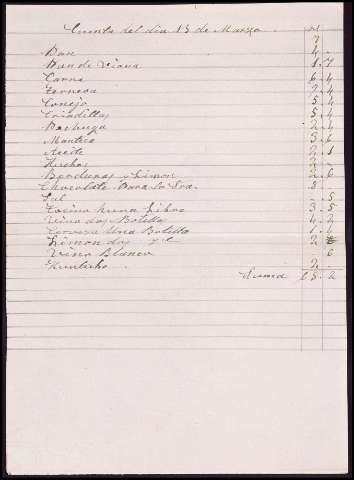 Cuenta del dia 13 de Marzo
Pan 4
Pan de Viena 1 7
Carne 6 4
Ternera 7 4
Conejo 5 4
Criadillas 5 4
Pechuga 2 4
Manteca 3 6
Aceite 2 1
Huebos 2
Berduras y Limon 2 6
Chocolate Para la Sra. 8
Sal 5
Tocino una Libra 3 5
Vino dos Botellas 4 2
Cerveza Una Botella 1 6
Limon dos 2
Vino Blanco 6
2
Suma 65 2